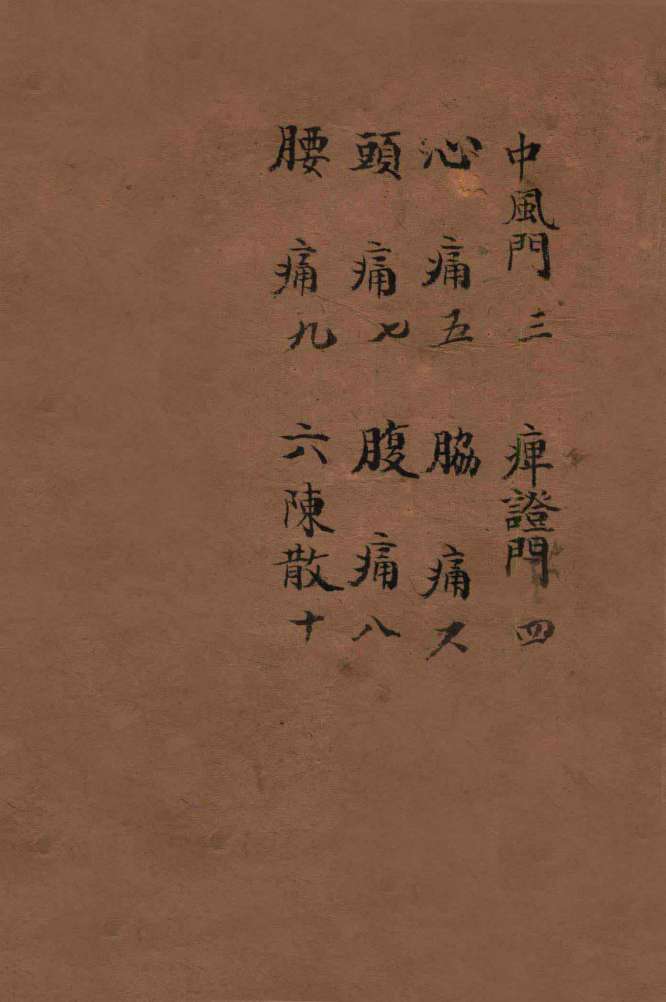 中風門三 痺證門四
心痛五 脇痛六
頭痛七 腹痛八
腰痛九 六陳散十